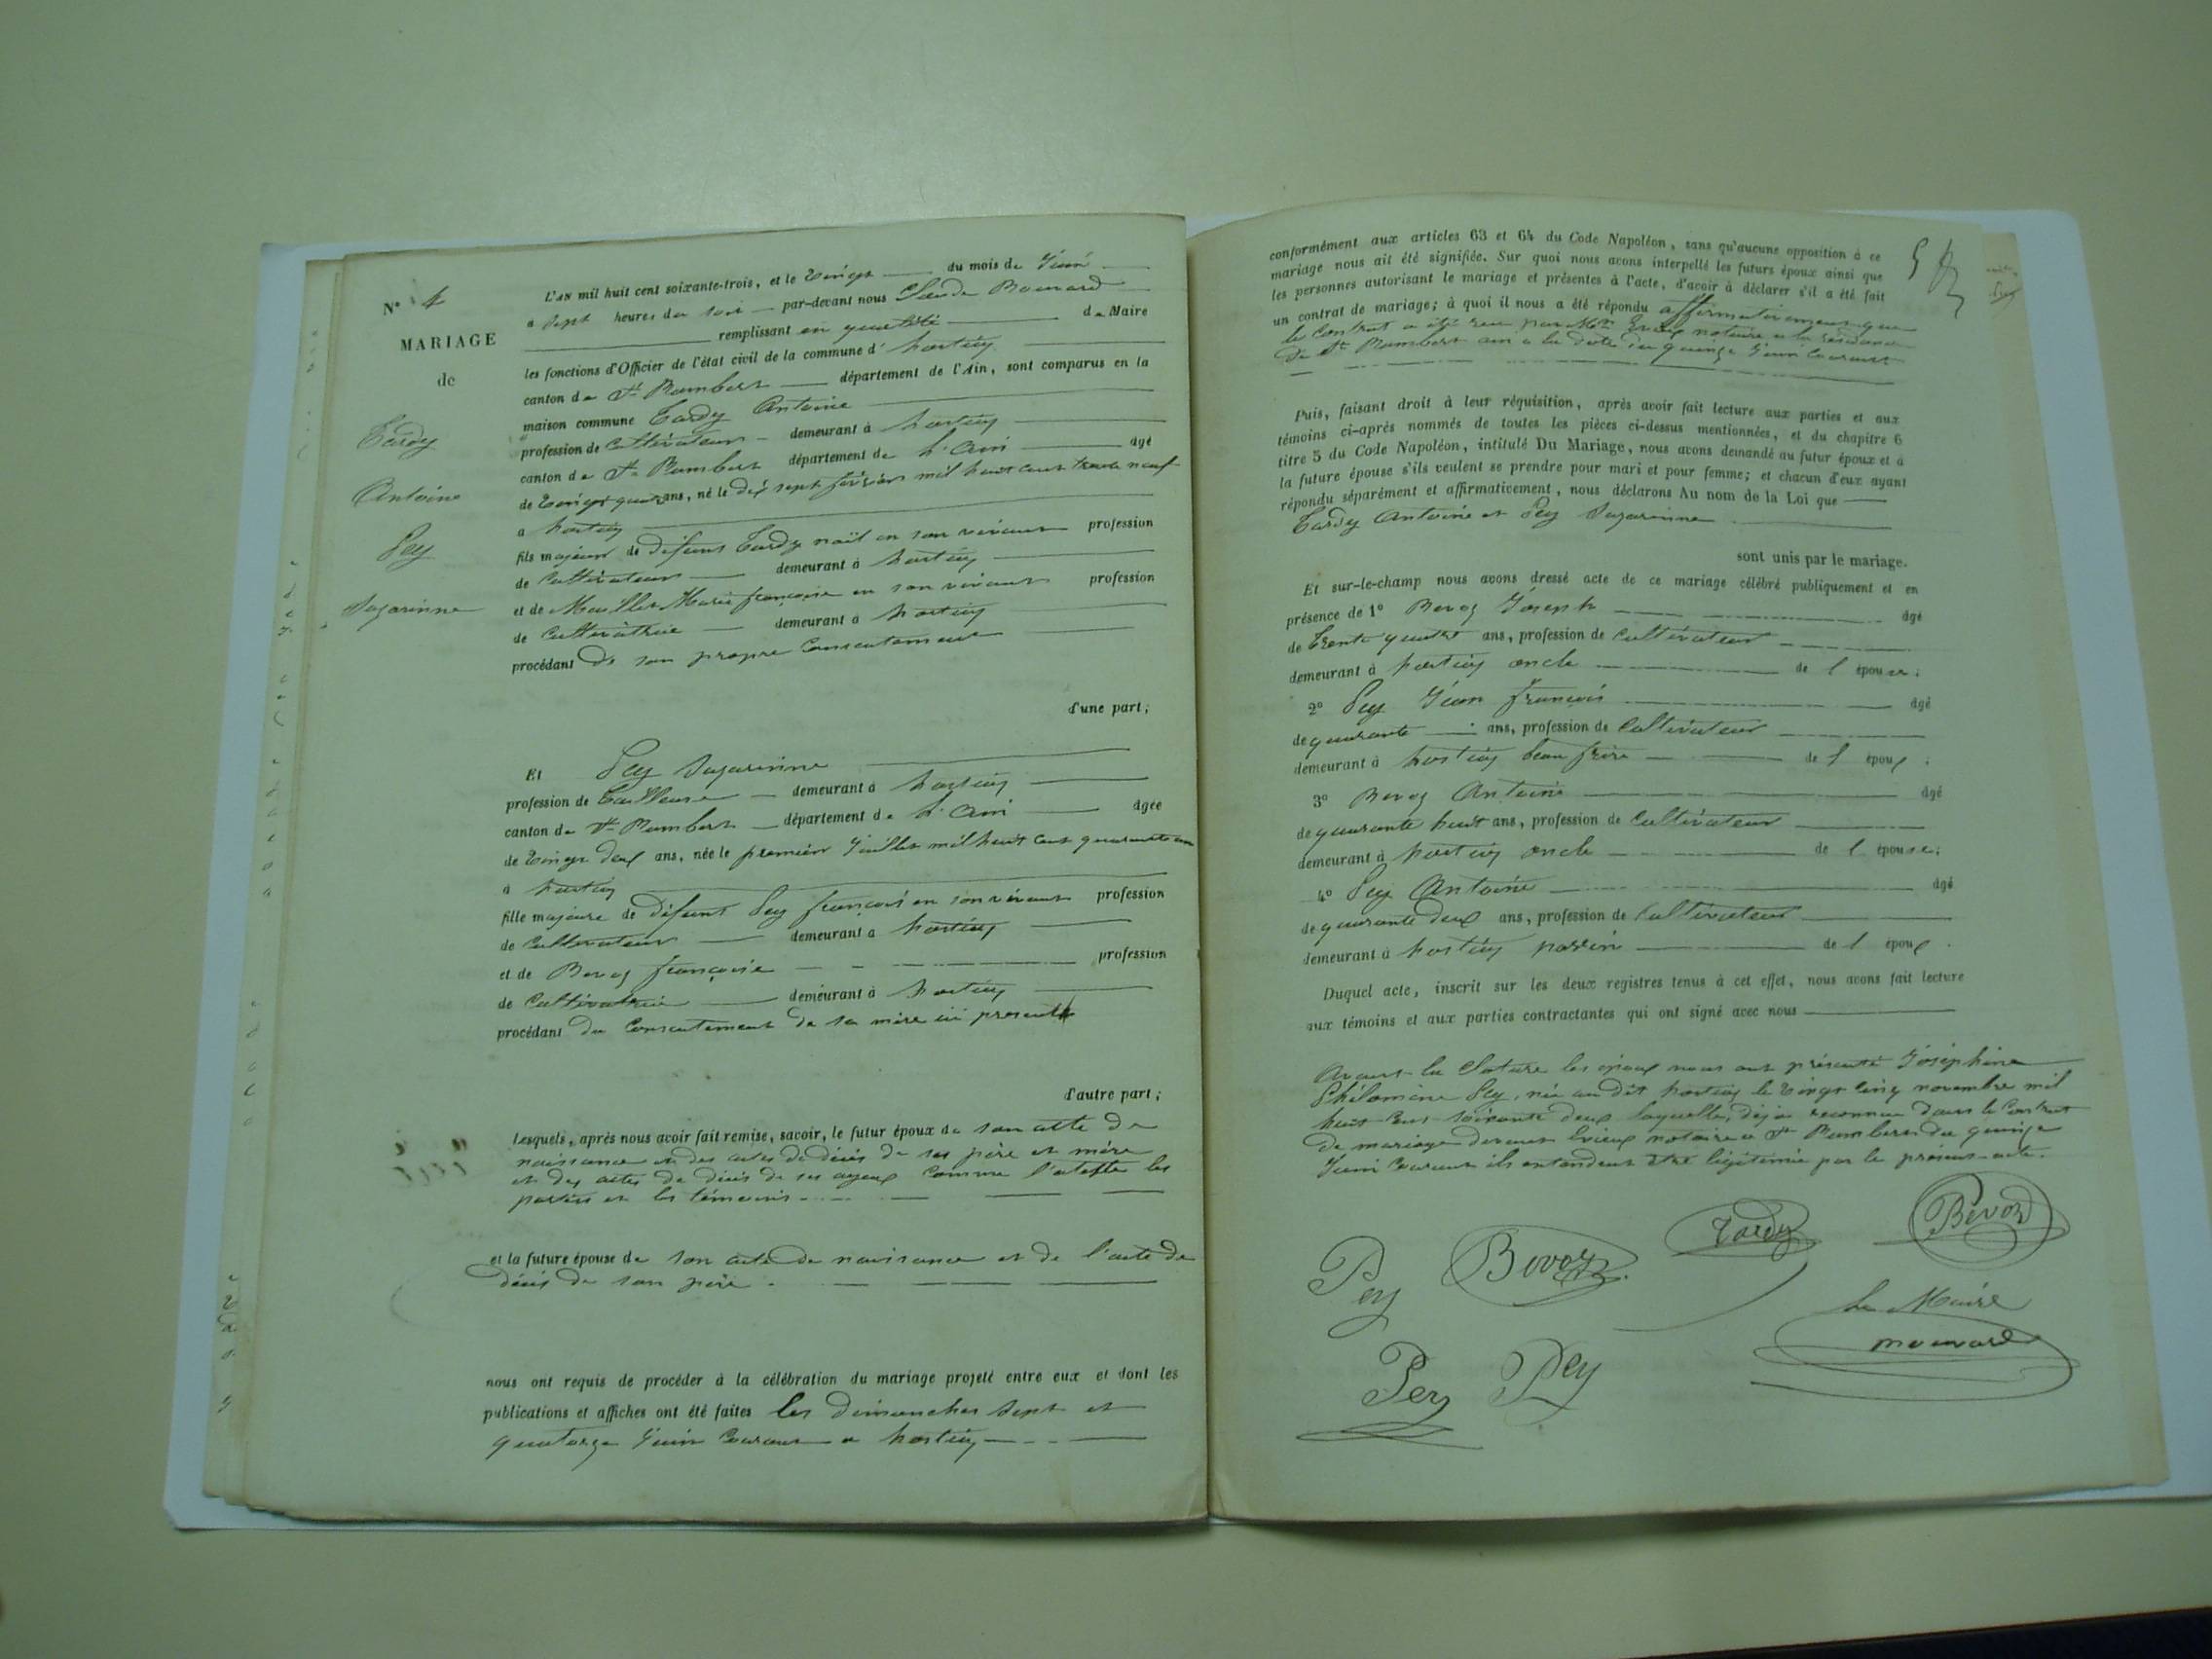 N° 4
MARIAGE
de
Tardy
Antoine
Pey
Suzarinne
L'AN mil huit cent soixante-trois, et le vingt du mois de Juin
a sept heures du soir par-devant nous Claude
remplissant en qualité de Maire
les fonctions d'Officier de l'état civil de la commune d' hostiaz
canton de St Rambert département de l'Ain, sont comparus en la
maison commune Tardy Antoine
profession de Cultivateur demeurant à hostiaz
canton de St Rambert département de L'Ain âgé
de vingt quatre ans, né le dix sept février mil huit cent trente neuf
a hostiaz
fils majeur de défunt Tardy noël en son vivant profession
de Cultivateur demeurant à hostiaz
et de Marie françoise en son vivant profession
de Cultivatrice demeurant à hostiaz
procédant de son propre Consentement
d'une part;
Et Pey Suzarinne
profession de Tailleuse demeurant à hostiaz
canton de St Rambert département de L'Ain âgée
de vingt deux ans, née le premier Juillet mil huit cent quarante un
à hostiaz
fille majeure de défunt Pey françois en son vivant profession
de Cultivateur demeurant a hostiaz
et de Bevoz françoise profession
de Cultivatrice demeurant à hostiaz
procédant du Consentement de sa mère ici présente
d'autre part;
Lesquels, après nous avoir fait remise, savoir, le futur époux de son acte de
naissance et des actes de décès de ses père et mère
et des actes de décès de ses ayeux comme l'atteste les
parties et les témoins
et la future épouse de son acte de naissance et de l'acte de
décès de son père.
nous ont requis de procéder à la célébration du mariage projeté entre eux et dont les
publications et affiches ont été faites les dimanches sept et
quatorze Juin Courant a hostiaz
conformément aux articles 63 et 64 du Code Napoléon, sans qu'aucune opposition à ce
mariage nous ait été signifiée. Sur quoi nous avons interpellé les futurs époux ainsi que
les personnes autorisant le mariage et présentes à l'acte, d'avoir à déclarer s'il a été fait
un contrat de mariage; à quoi il nous a été répondu affirmativement que
le Contrat a été reçu par Mtre notaire a la résidence
de St Rambert ain a la date du quinze Juin Courant
Puis, faisant droit à leur réquisition, après avoir fait lecture aux parties et aux
témoins ci-après nommés de toutes les pièces ci-dessus mentionnées, et du chapitre 6
titre 5 du Code Napoléon, intitulé Du Mariage, nous avons demandé au futur époux et à
la future épouse s'ils veulent se prendre pour mari et pour femme; et chacun d'eux ayant
répondu séparément et affirmativement, nous déclarons Au nom de la Loi que
Tardy Antoine et Pey Suzarinne
sont unis par le mariage.
Et sur-le-champ nous avons dressé acte de ce mariage célébré publiquement et en
présence de 1° Bevoz Joseph âgé
de trente quatre ans, profession de Cultivateur
demeurant à hostiaz oncle de l épouse;
2° Pey Jean françois âgé
de quarante ans, profession de Cultivateur
demeurant à hostiaz beau frère de l époux;
3° Bevoz Antoine âgé
de quarante huit ans, profession de Cultivateur
demeurant à hostiaz oncle de l épouse;
4° Pey Antoine âgé
de quarante deux ans, profession de Cultivateur
demeurant à hostiaz parrin de l époux.
Duquel acte, inscrit sur les deux registres tenus à cet effet, nous avons fait lecture
aux témoins et aux parties contractantes qui ont signé avec nous
Avant la Cloture les époux nous ont présenté Joséphine
Philomène Pey, née au dit hostiaz le vingt cinq novembre mil
huit Cent soixante deux laquelle, déja reconnue dans le Contrat
de mariage devant notaire a St Rambert du quinze
Juin Courant ils entendent être légitimée par le présent acte.
Pey Bevoz Tardy Bevoz
Le Maire
Pey Pey